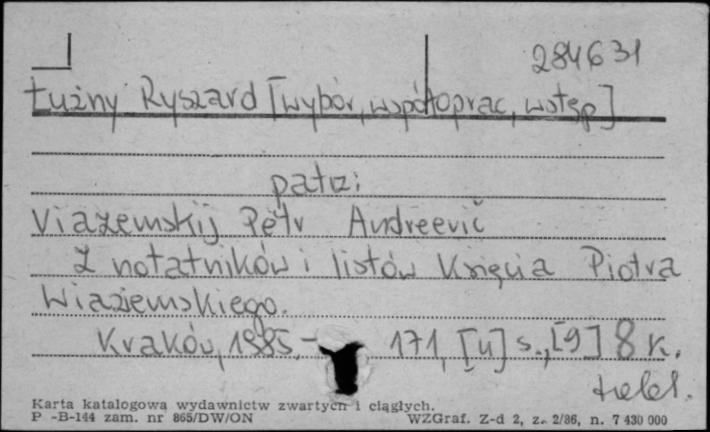 284631
Łużny Ryszard [wybór, współoprac, wstęp]
patrz:
Viazemskij Pëtr Andreevič
Z notatników i listów Księcia Piotra
Wiaziemskiego.
Kraków, 1985.- 171, [4] s., [9] 8 k.
Karta katalogowa wydawnictw zwartych i ciągłych.
P -B-144 zam. nr 865/DW/ON WZGraf. Z-d 2, z. 2/86, n. 7 430 000